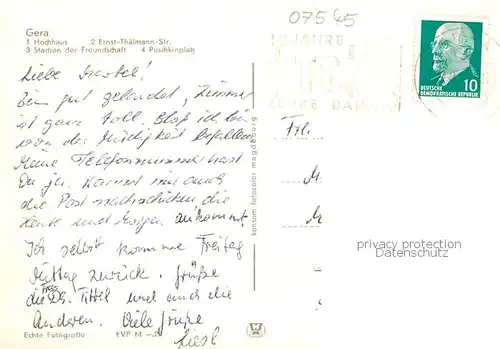 Gera
1 Hochhaus 2 Ernst-Thälmann-Str.
3 Stadion der Freundschaft 4 Puschkinplatz
07545
JAHRE
DEUTSCHE
DEMOKRATISCHE REPUBLIK
10
Liebe
Bin gut gelandet, Zimmer
ist ganz toll. Bloß ich bin
von der Müdigkeit befallen.
Meine Telefonnummer hast
Du ja. Kannst mir auch
die Post nachschicken, die
Heute und Morgen ankommt.
Ich selbst komme Freitag
Mittag zurück. Grüße
die Tittel und auch die
Anderen. Viele Grüße
Liesl
Frl.
konsum fotocolor magdeburg
privacy protection
Datenschutz
Echte Fotografie EVP M